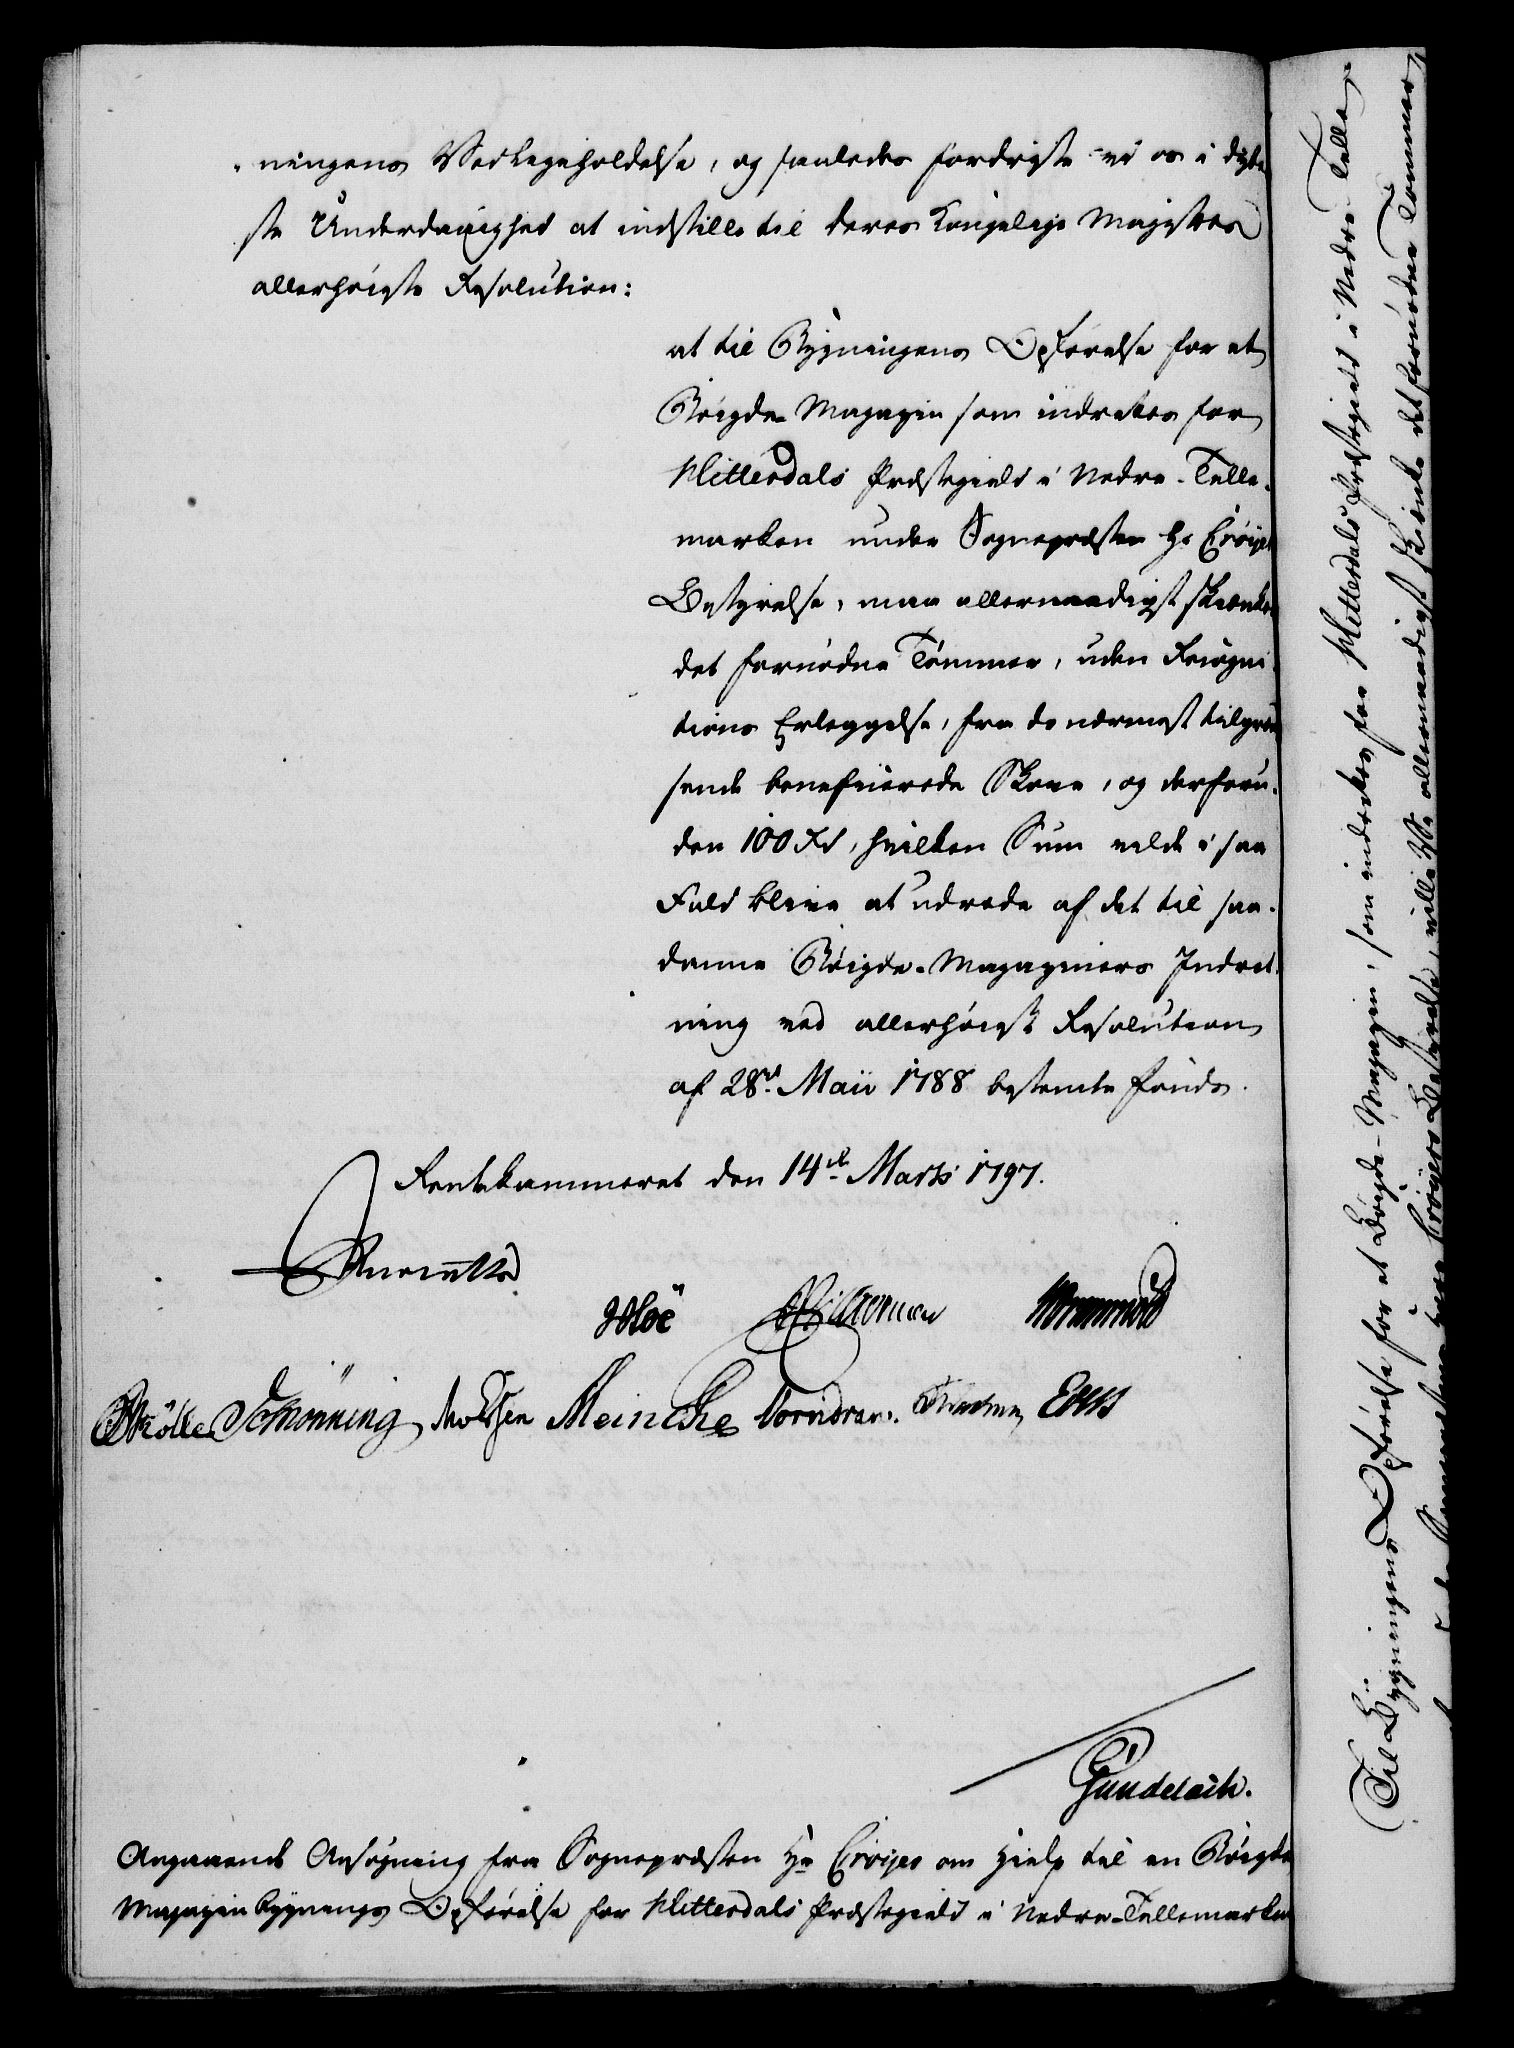 ningens Vedligeholdelse, og saaledes fordriste vi os i dybe
ste Underdanighed at indstille til Deres Kongelige Majestæts
allerhøieste Resolution:
at til Bygningens Opførelse for et
Bøigde-Magazin som indrettes for
Hitterdals Præstegield i Nedre-Telle-
marken under Sognepræsten Hr Crøijers
Bestyrelse, maa allernaadigst skienkes
det fornødne Tømmer, uden Recogni-
tions Erleggelse, fra de nærmest tilgræn
sende beneficerede Skove, og desforu-
den 100 Rd, hvilken Sum vilde i saa
Fald blive at udrede af det til saa-
danne Bøigde-Magaziners Indret-
ning ved allerhøieste Resolution
af 28de Maii 1788 bestemte Fond.
Rentekammeret den 14de Marts 1797.
Reventlow
Hoë
Wormskiold
Mølle Schønning Meincke Vornidran
Gundelach.
Angaaende Ansøgning fra Sognepræsten Hr Crøijer om Hielp til en Bøigde
Magazin Bygnings Opførelse for Hitterdals Præstegield i Nedre-Tellemarken
Til Bygningens Opførelse for et Bøigde-Magazin, som indrettes for Hitterdals Præstegield i Nedre-Telle-
Crøijers Bestyrelse, ville Vi allernaadigst skienke det fornødne Tømmer,